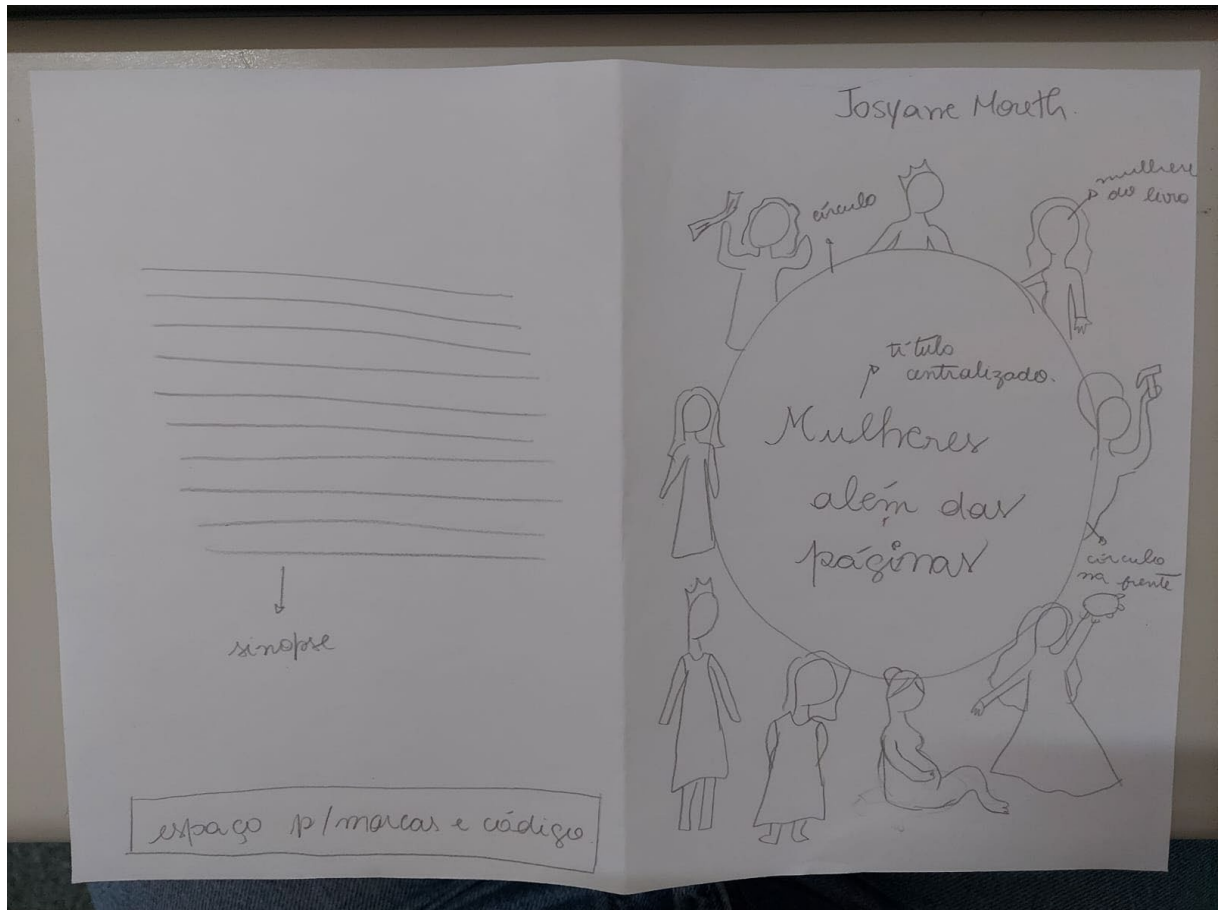 sinopse
espaço p/marcas e código
Josyane Moreth.
mulheres
do livro
círculo
título
centralizado.
Mulheres
além das
páginas
círculo
na frente